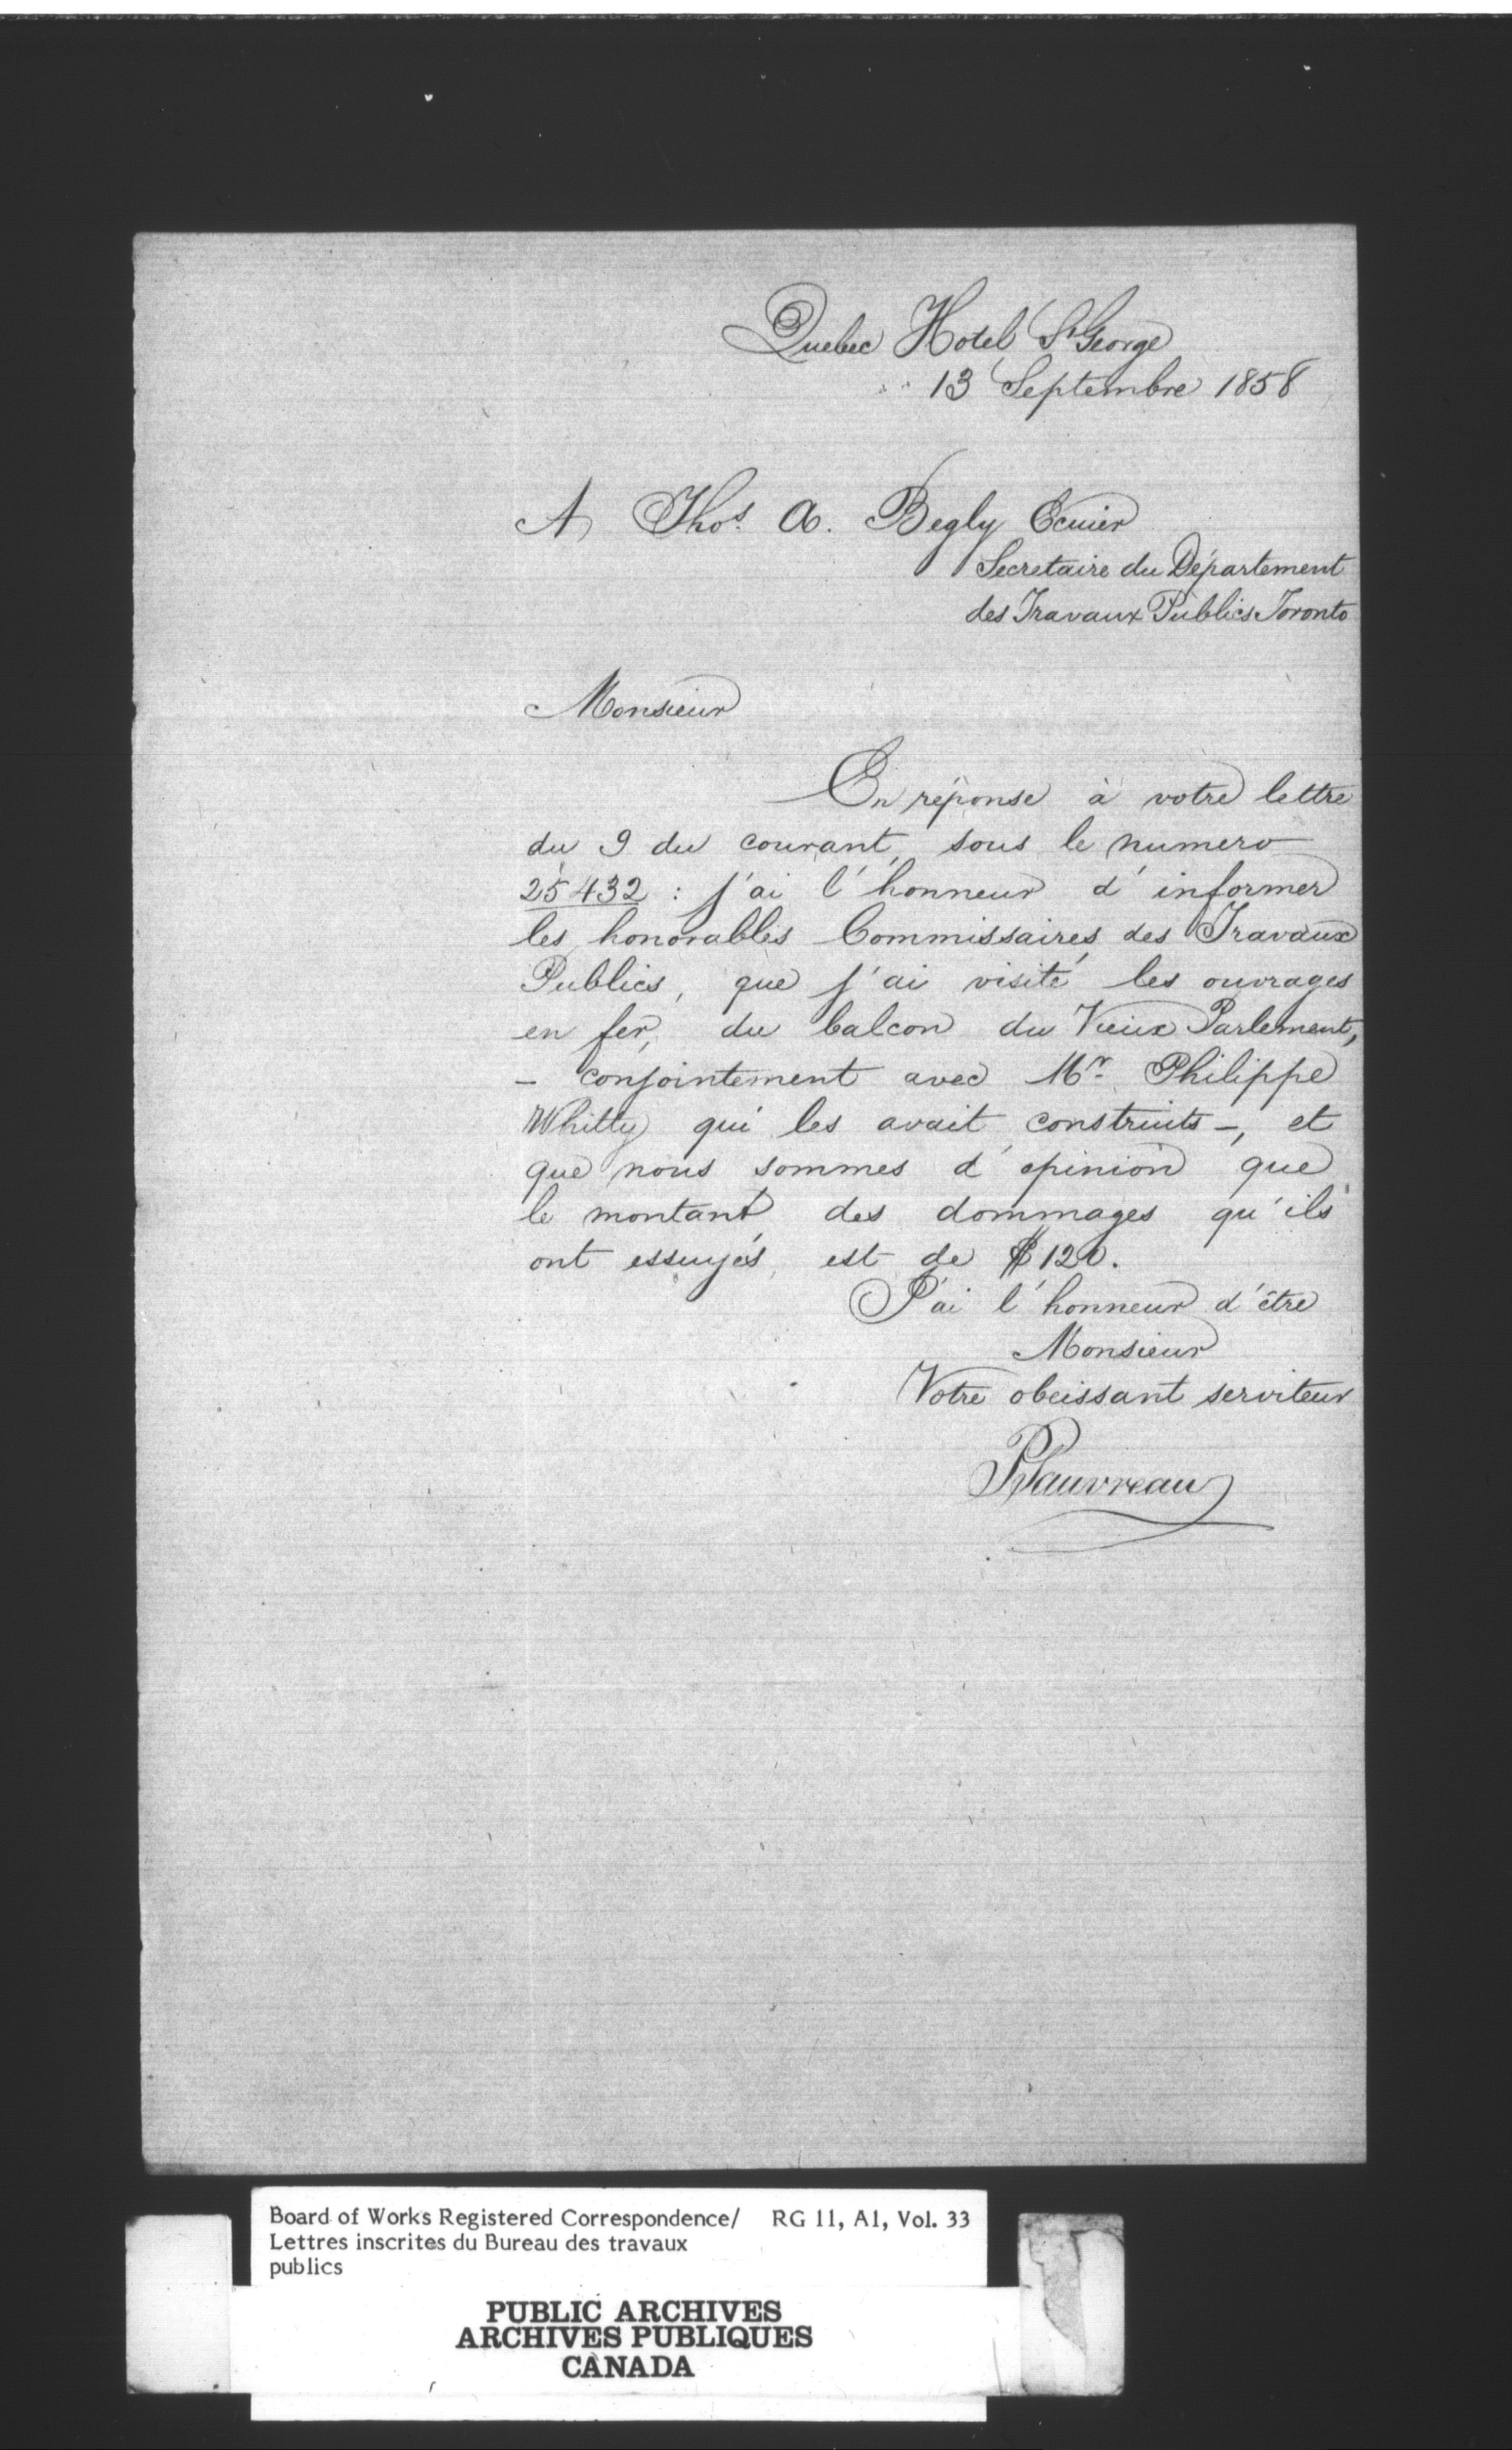 Quebec Hotel St George
" " 13 Septembre 1858
A Thos. A. Begly Ecuier
Secretaire du Département
des Travaux Publics Toronto
Monsieur
En réponse à votre lettre
du 9 du courant, sous le numero
25432 : j'ai l'honneur d'informer
les honorables Commissaires des Travaux
Publics, que j'ai visité les ouvrages
en fer, du balcon du Vieux Parlement,
- conjointement avec Mr. Philippe
Whitty qui les avait construits -, et
que nous sommes d'opinion que
le montant des dommages qu'ils
ont essuyés, est de $120.
J'ai l'honneur d'être
Monsieur
Votre obeissant serviteur
PGauvreau
Board of Works Registered Correspondence/ RG 11, A1, Vol. 33
Lettres inscrites du Bureau des travaux
publics
PUBLIC ARCHIVES
ARCHIVES PUBLIQUES
CANADA